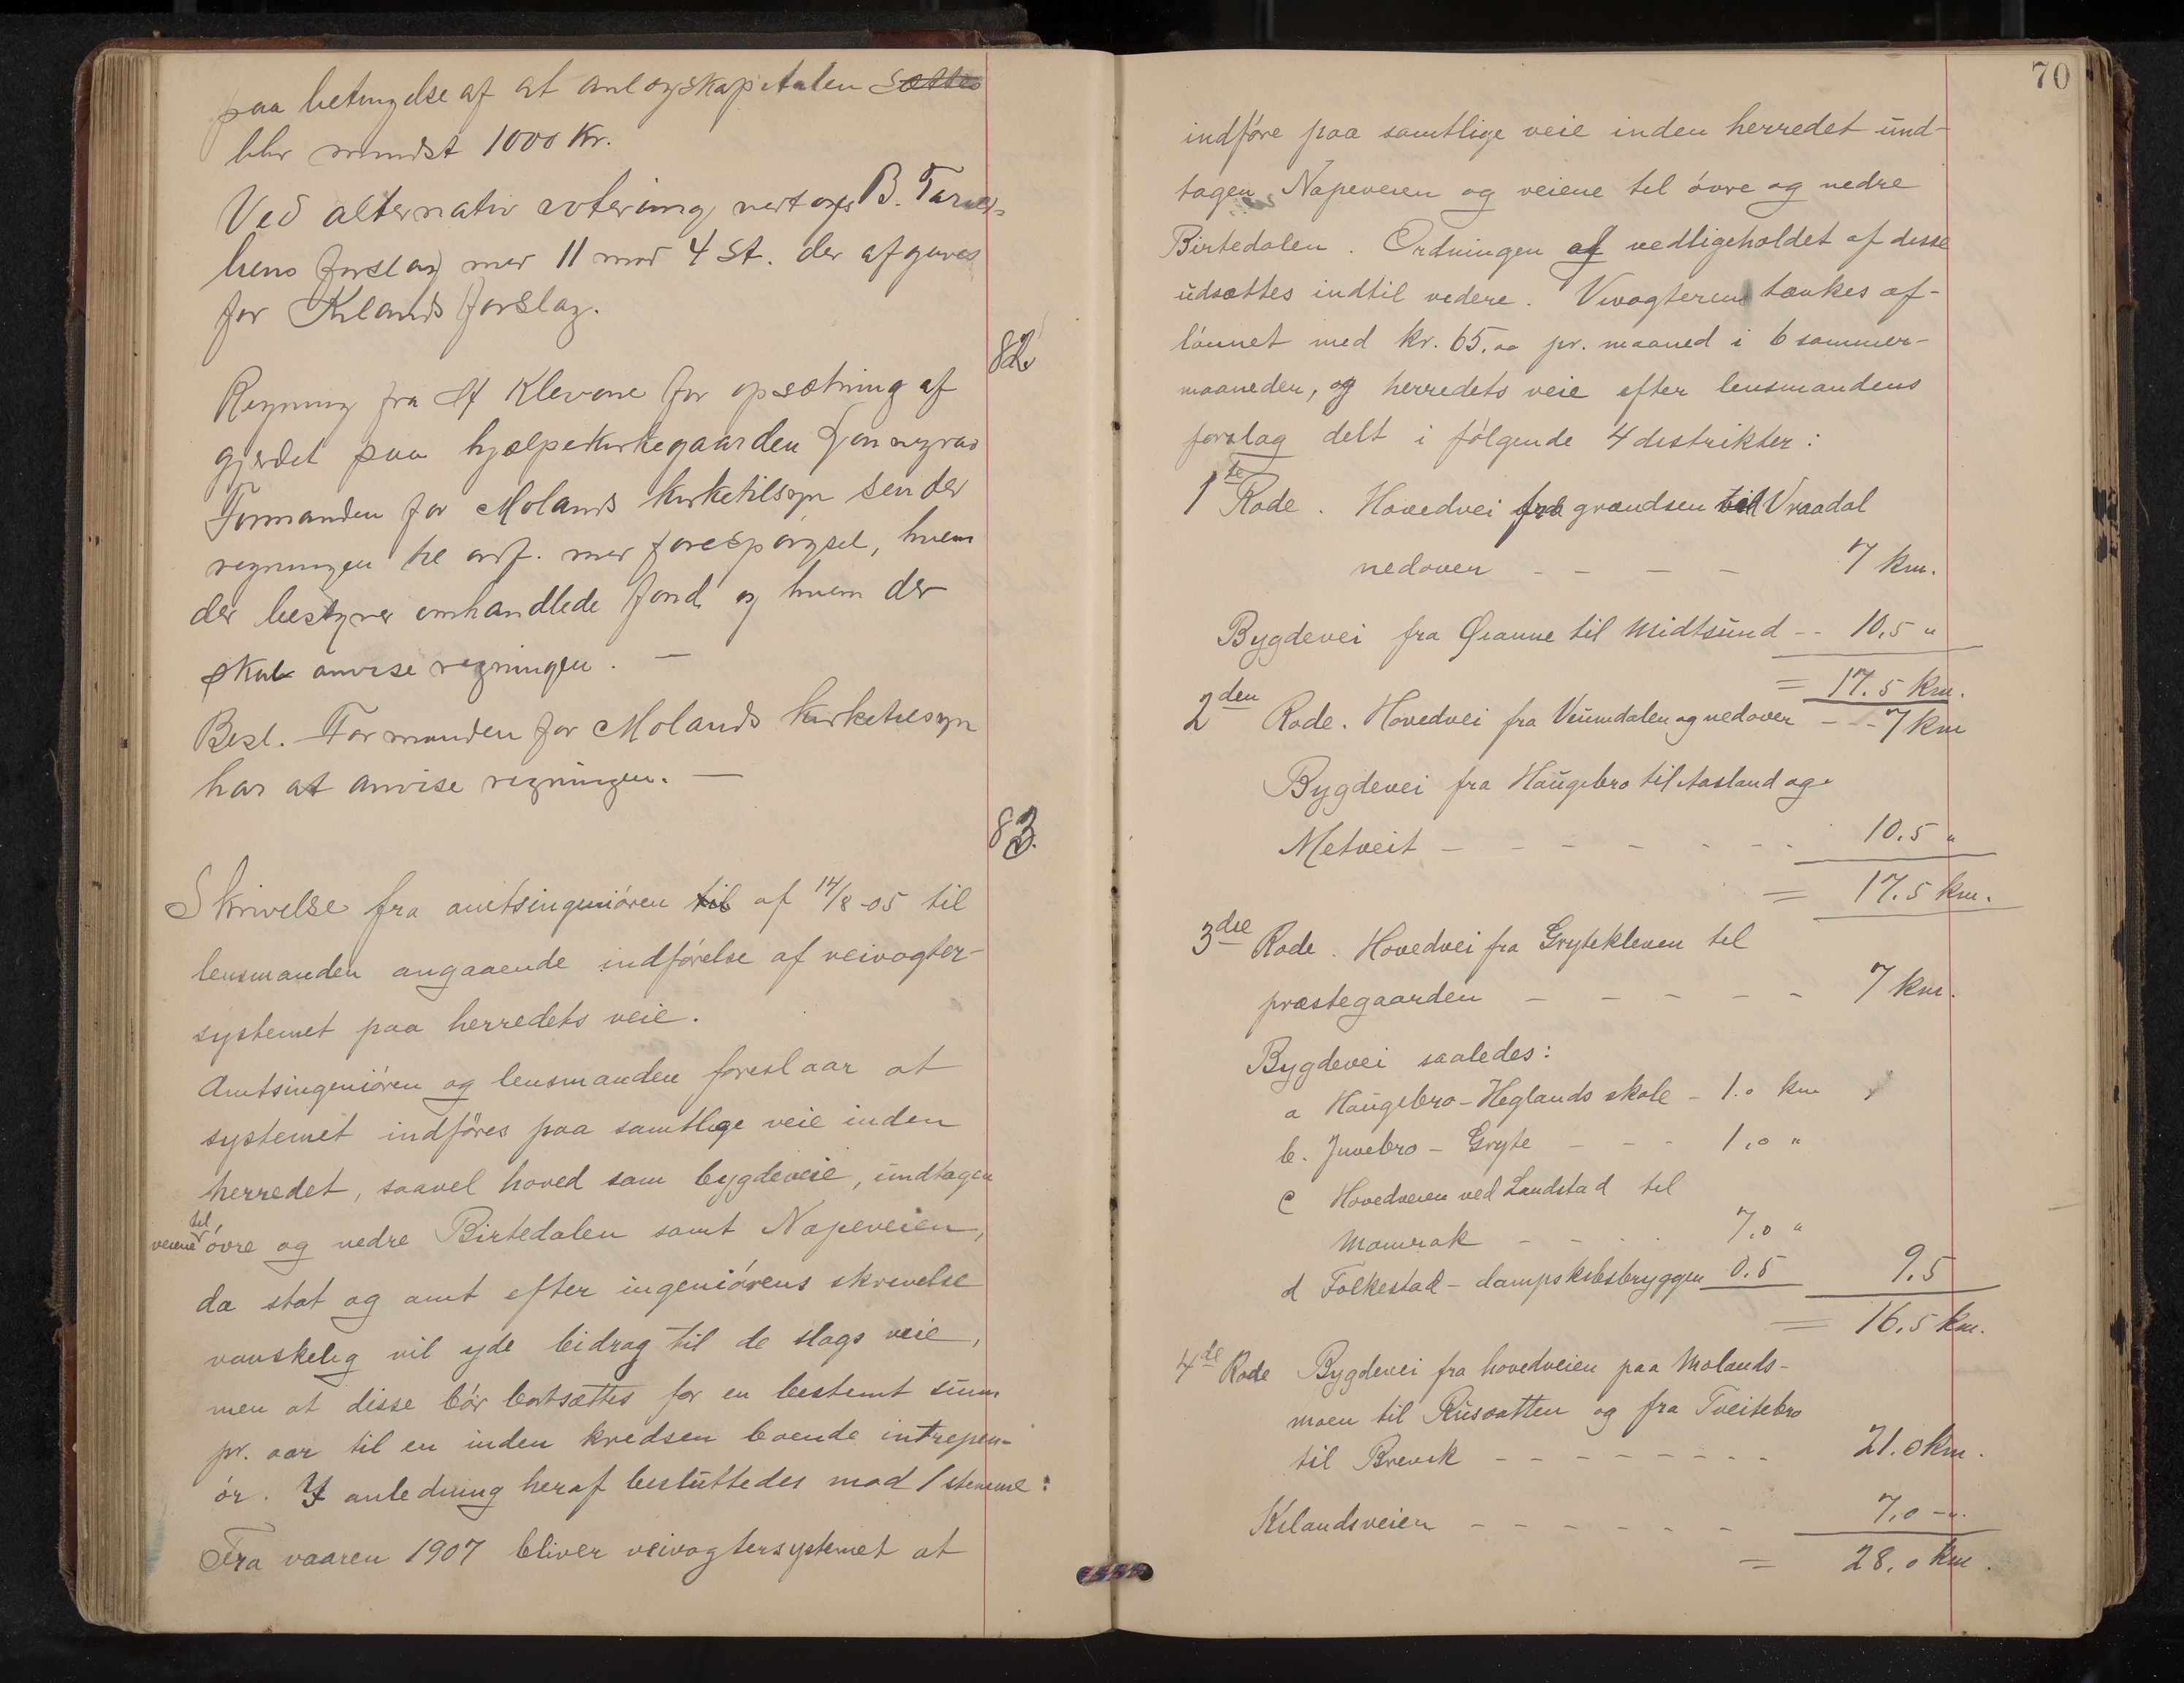 paa betingelse af at anlægskapitalen sættes
blir mindst 1000 Kr.
Ved alternativ votering vedtoges B. Tarald-
liens forslag med 11 mod 4 st. der afgaves
for Kilands forslag.
82.
Regning fra H Klevene for opsætning af
gjerdet paa hjælpekirkegaarden
Formanden for Molands kirketilsyn sender
regningen til ordf. med forespørgsel, hvem
der bestyrer omhandlede fond og hvem der
skal anvise regningen. —
Besl. Formanden for Molands kirketilsyn
har at anvise regningen. —
83.
Skrivelse fra amtsingeniören til af 14/8-05 til
lensmanden angaaende indførelse af veivogter-
systemet paa herredets veie.
Amtsingeniören og lensmanden foreslaar at
systemet indföres paa samtlige veie inden
herredet, saavel hoved som bygdeveie, undtagen
veiene til övre og nedre Birtedalen samt Napeveien,
da stat og amt efter ingeniörens skrivelse
vanskelig vil yde bidrag til de slags veie,
men at disse bör bortsættes for en bestemt sum
pr. aar til en inden kredsen boende intrepen-
ör. I anledning heraf besluttedes mod 1 stemme:
Fra vaaren 1907 bliver veivogtersystemet at
70
indföre paa samtlige veie inden herredet und-
tagen Napeveien og veiene til övre og nedre
Birtedalen. Ordningen af vedligeholdet af disse
udsættes indtil videre. Vivogterene tænkes af-
lönnet med kr. 65.00 pr. maaned i 6 sommer-
maaneder, og herredets veie efter lensmandens
forslag delt i fölgende 4 distrikter:
1ste Rode. Hovedvei fra grændsen ved Vraadal
nedover - - - - 7 km.
Bygdevei fra Græanne til Midtsund -- 10,5 "
= 17.5 km.
2den Rode. Hovedvei fra Veumdalen og nedover - - 7 km
Bygdevei fra Haugebro til Aasland og
Metveit - - - - - - - 10.5 "
= 17.5 km.
3die Rode. Hovedvei fra Grytekleven til
præstegaarden - - - - - 7 km.
Bygdevei saaledes:
a Haugebro - Heglands skole - 1.0 km
b. Juvebro - Gryte - - - 1,0 "
c Hovedveien ved Landstad til
Momrak - - - 7,0 "
d Folkestad - dampskibsbryggen 0.5 9.5
= 16.5 km.
4de Rode Bygdevei fra hovedveien paa Molands-
moen til Rusvatten og fra Tveitebro
til Brevik - - - - - - - - 21.0 km.
Kilandsveien - - - - - - 7,0 -"-
= 28,0 km.